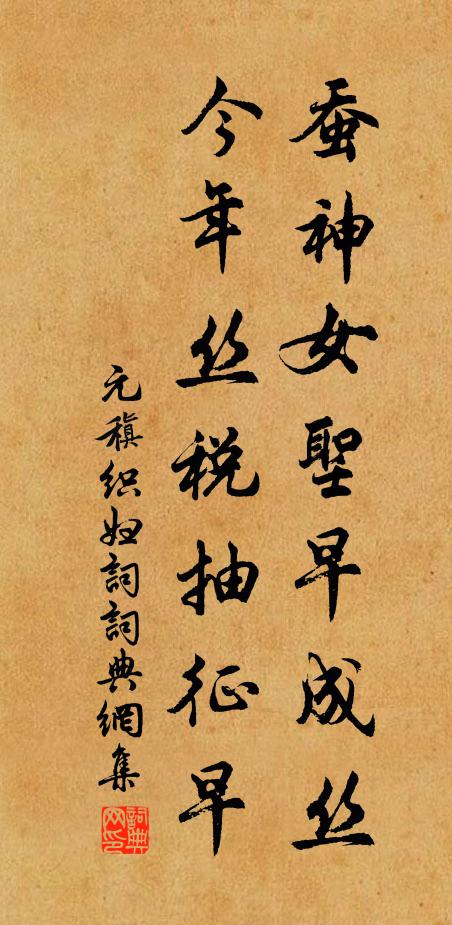 蚕神女聖早成丝
今年丝税抽征早
元稹织妇詞詞典網集
詞典網印